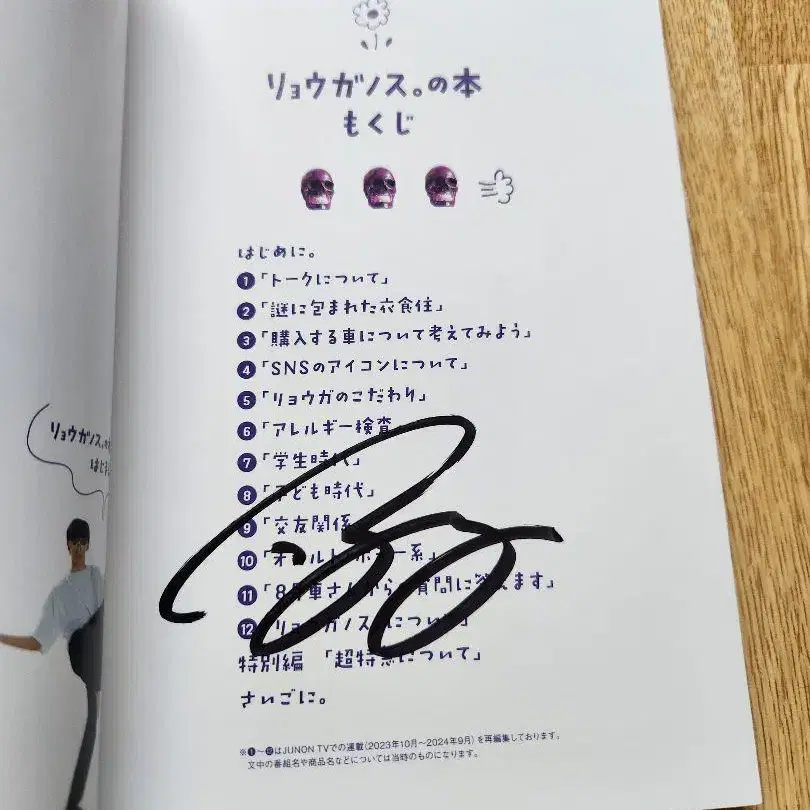 リョウガノス。の本
もくじ
はじめに。
❶「トークについて」
❷「謎に包まれた衣食住」
❸「購入する車について考えてみよう」
❹「SNSのアイコンについて」
❺「リョウガのこだわり」
❻「アレルギー検査」
❼「学生時代」
❽「子ども時代」
❾「交友関係」
❿
⓫「8号車さんからの質問に答えます」
⓬「リョウガノス。について」
特別編 「超特急について」
さいごに。
※❶〜⓬はJUNON TVでの連載(2023年10月〜2024年9月)を再編集しております。
文中の番組名や商品名などについては当時のものになります。
リョウガノス。の
はじ